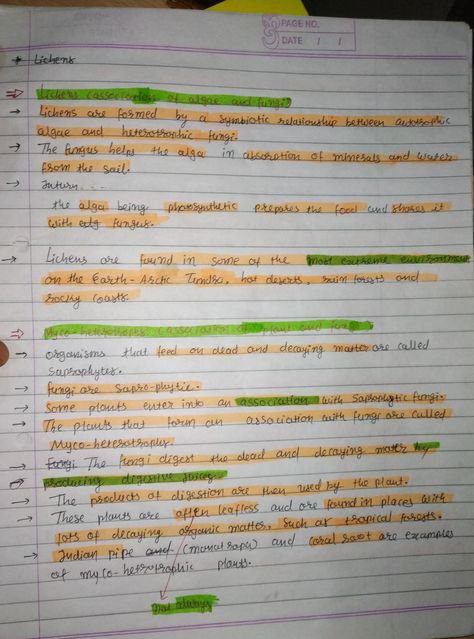 PAGE NO.
DATE / /
* Lichens
⇒ Lichens (association of algae and fungi)
→ Lichens are formed by a symbiotic relationship between autotrophic
algae and heterotrophic fungi.
→ The fungus helps the alga in absorption of minerals and water
from the soil.
→ Inturn....
the alga being photosynthetic prepares the food and shares it
with fungus.
→ Lichens are found in some of the most extreme environment
on the Earth-Arctic Tundra, hot deserts, rain forests and
rocky coasts.
⇒ Myco-heterotrophs (association of plant and fungi)
→ organisms that feed on dead and decaying matter are called
Saprophytes.
→ fungi are Sapro-phytic.
→ Some plants enter into an association with Saprophytic fungi.
→ The plants that form an association with fungi are called
Myco-heterotrophs.
→ Fungi The fungi digest the dead and decaying matter by
⇒ producing digestive juices.
→ The products of digestion are then used by the plant.
→ These plants are often leafless and are found in places with
lots of decaying organic matter, such as tropical forests.
→ Indian pipe and (monotropa) and coral root are examples
of myco-hetrophic plants.
not always